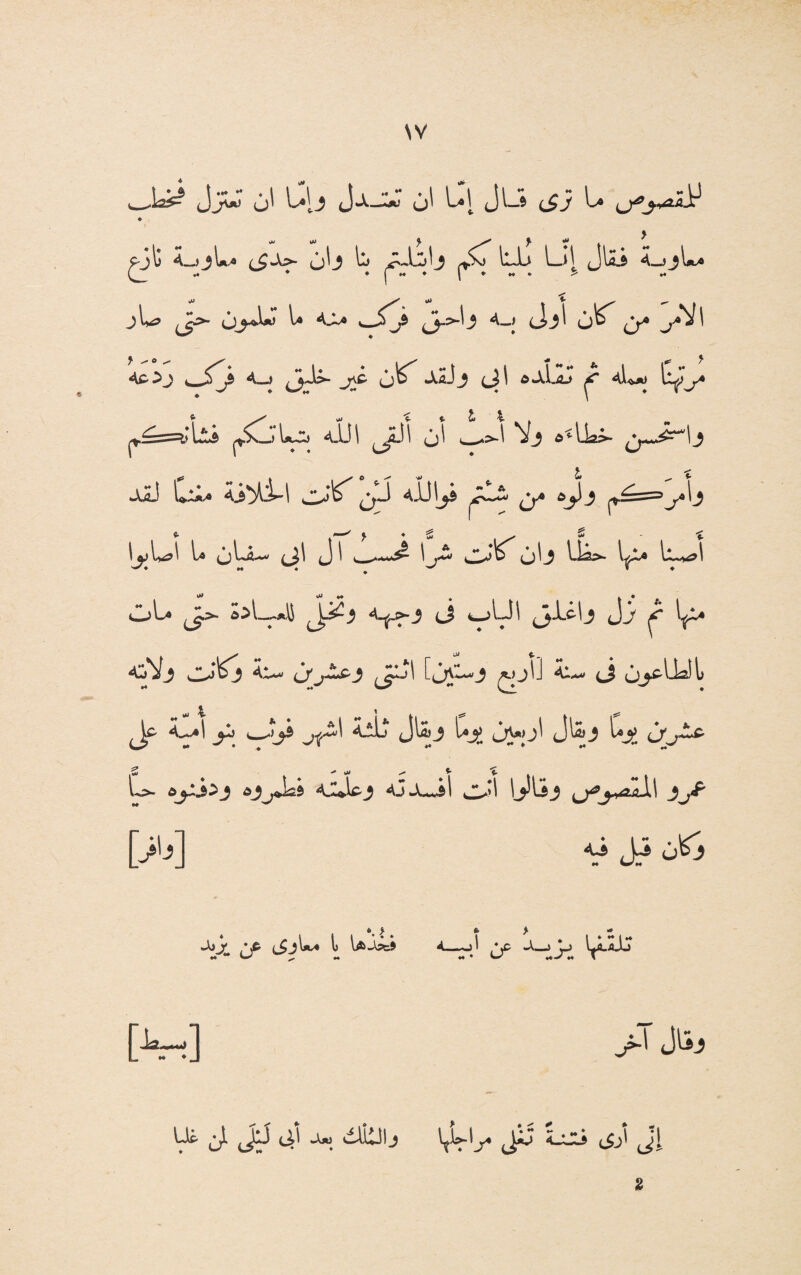 ١٧
للمقصوص ترى ما قال إمّا ان تعتدل وإمّا ان تعتزل فخطب
معاوية فقال إنّا بُلينا بكم وابتليتم بنا وانّ جدّى معاوية نازع
الأمر من كان أولى به وأحقّ فركب منه ما تعلمون حتّى صار
مرتهنًا بعمله ثم تقلّده أبى ولقد كان غير خليق به فركب رَدْعَهُ
واستحسن خطاءه ولا أُحبّ أن ألقى الله بتبعاتكم فشانكم
وأمركم ولّوه من شئتم فوالله لَئِنْ كانت الخلافة مغنمًا لقد
أصبنا منها حظًّا وان كانت شرًّا فحَسْبُ آل ابى سفيان ما أصابوا
منها ثم نزل واغلق الباب فى وجهه وتخلّى للعبادة حتّى مات
بالطاعون فى سنة [أربع وستّين] اثنتى وعشرين سنة وكانت ولايته
عشرين يومًا ويقال أربعين يومًا ويقال ثلثة اشهر فوثب بنو أميّة على
عمرو المقصوص وقالوا أنت أفسدته وعلّمته فطمروه ودفنوه حيًّا
وكان قيل فيه [وافر]
تلقّفها يزيد عن أبيه فخذها يا معاوى عن يزيد
وقال آخر [بسيط]
إنّى أرى فتنة تغلى مراجلها والملك بعد أبى ليلى لمن غلبا
2